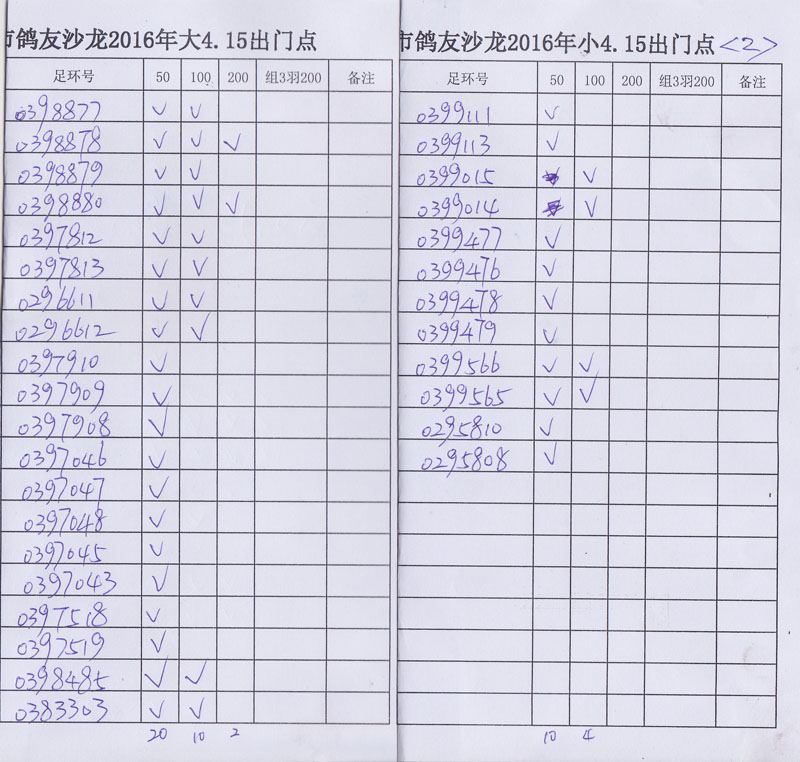 市鸽友沙龙2016年大4.15出门点
足环号 50 100 200 组3羽200 备注
0398877 √ √
0398878 √ √ √
0398879 √ √
0398880 √ √ √
0397812 √ √
0397813 √ √
0296611 √ √
0296612 √ √
0397910 √
0397909 √
0397908 √
0397046 √
0397047 √
0397048 √
0397045 √
0397043 √
0397518 √
0397519 √
0398485 √ √
0383303 √ √
20 10 2
市鸽友沙龙2016年小4.15出门点<2>
足环号 50 100 200 组3羽200 备注
0399111 √
0399113 √
0399015 √
0399014 √
0399477 √
0399476 √
0399478 √
0399479 √
0399566 √ √
0399565 √ √
0295810 √
0295808 √
10 4